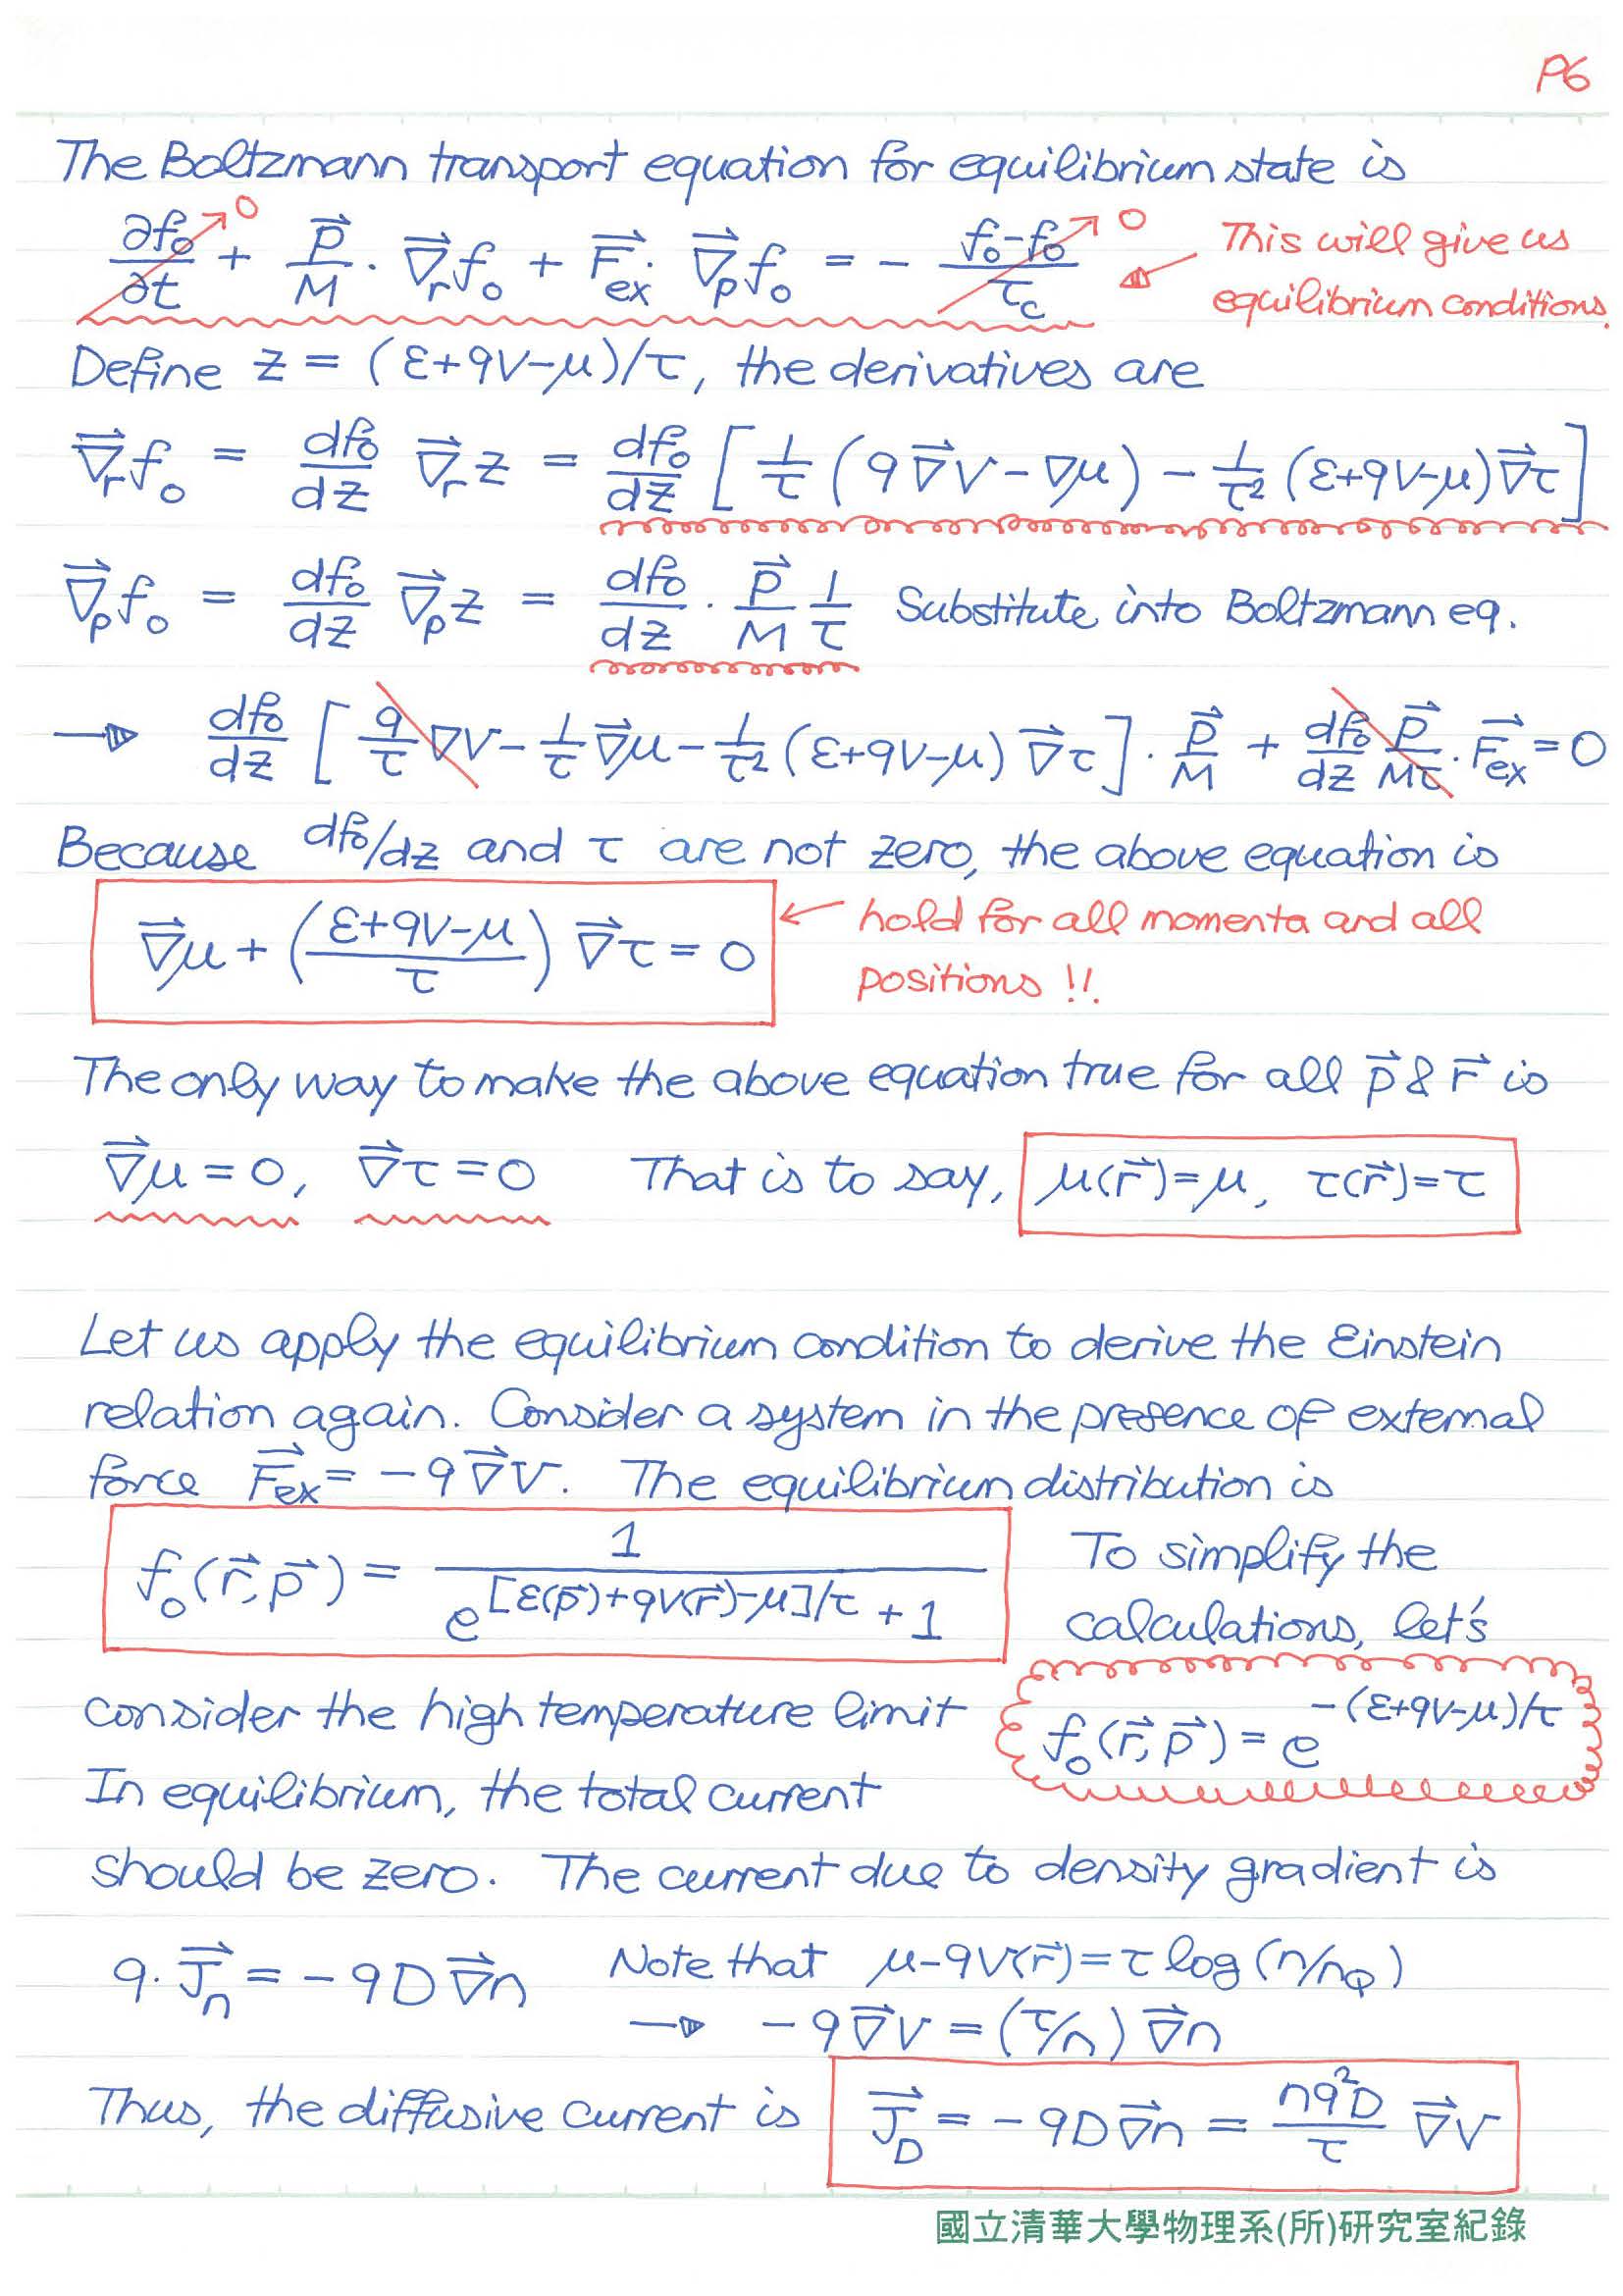 P6
The Boltzmann transport equation for equilibrium state is
∂f₀/∂t →0 + p⃗/M · ∇⃗ᵣf₀ + F⃗ex · ∇⃗ₚf₀ = - (f₀-f₀)/τc →0 ← This will give us
equilibrium conditions.
Define z = (ε+qV-μ)/τ, the derivatives are
∇⃗ᵣf₀ = df₀/dz ∇⃗ᵣz = df₀/dz [1/τ (q∇⃗V-∇μ) - 1/τ² (ε+qV-μ)∇⃗τ]
∇⃗ₚf₀ = df₀/dz ∇⃗ₚz = df₀/dz · p⃗/M 1/τ Substitute into Boltzmann eq.
→ df₀/dz [q/τ ∇V - 1/τ ∇⃗μ - 1/τ² (ε+qV-μ) ∇⃗τ] · p⃗/M + df₀/dz p⃗/Mτ · F⃗ex = 0
Because df₀/dz and τ are not zero, the above equation is
∇⃗μ + ((ε+qV-μ)/τ) ∇⃗τ = 0 ← hold for all momenta and all
positions !!.
The only way to make the above equation true for all p⃗ & r⃗ is
∇⃗μ = 0, ∇⃗τ = 0 That is to say, μ(r⃗)=μ, τ(r⃗)=τ
Let us apply the equilibrium condition to derive the Einstein
relation again. Consider a system in the presence of external
force F⃗ex = -q∇⃗V. The equilibrium distribution is
f₀(r⃗,p⃗) = 1/(e^{[ε(p⃗)+qV(r⃗)-μ]/τ} + 1) To simplify the
calculations, let's
consider the high temperature limit f₀(r⃗,p⃗) = e^{-(ε+qV-μ)/τ}
In equilibrium, the total current
should be zero. The current due to density gradient is
q·J⃗n = -qD∇⃗n Note that μ-qV(r⃗) = τ log(n/nQ)
→ -q∇⃗V = (τ/n) ∇⃗n
Thus, the diffusive current is J⃗D = -qD∇⃗n = nq²D/τ ∇⃗V
國立清華大學物理系(所)研究室紀錄